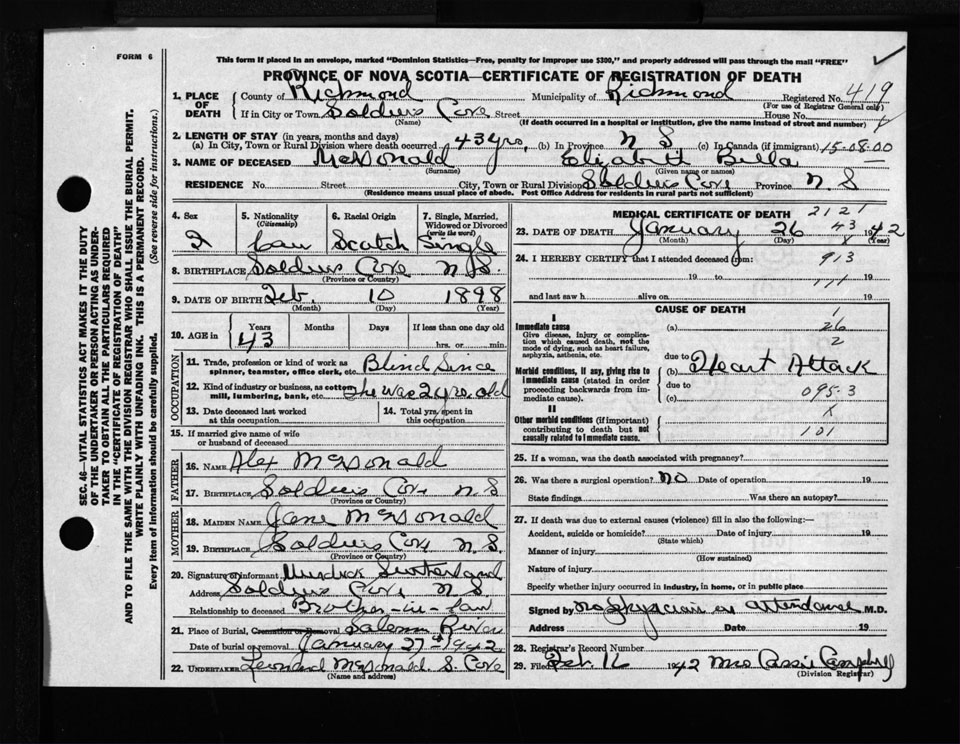 FORM 6
This form if placed in an envelope, marked "Dominion Statistics—Free, penalty for improper use $300," and properly addressed will pass through the mail "FREE"
PROVINCE OF NOVA SCOTIA—CERTIFICATE OF REGISTRATION OF DEATH
1. PLACE OF DEATH County of Richmond Municipality of Richmond Registered No. 419
(For use of Registrar General only)
If in City or Town Soldiers Cove Street House No.
(Name) (If death occurred in a hospital or institution, give the name instead of street and number)
2. LENGTH OF STAY (in years, months and days)
(a) In City, Town or Rural Division where death occurred 43 yrs. (b) In Province N S (c) In Canada (if immigrant) 15-08-00
3. NAME OF DECEASED McDonald Elizabeth Bella
(Surname) (Given name or names)
RESIDENCE No. Street City, Town or Rural Division Soldiers Cove Province N S
(Residence means usual place of abode. Post Office Address for residents in rural parts not sufficient)
4. Sex 5. Nationality (Citizenship) 6. Racial Origin 7. Single, Married, Widowed or Divorced (write the word)
2 Can Scotch Single
8. BIRTHPLACE Soldiers Cove N.S.
(Province or Country)
9. DATE OF BIRTH Feb. 10 1898
(Month) (Day) (Year)
10. AGE in Years Months Days If less than one day old
43 hrs. or min.
OCCUPATION
11. Trade, profession or kind of work as spinner, teamster, office clerk, etc. Blind Since
12. Kind of industry or business, as cotton mill, lumbering, bank, etc. she was 2 yrs. old
13. Date deceased last worked at this occupation 14. Total yrs. spent in this occupation
15. If married give name of wife or husband of deceased
FATHER
16. NAME Alex McDonald
17. BIRTHPLACE Soldiers Cove N S
(Province or Country)
MOTHER
18. MAIDEN NAME Jane McDonald
19. BIRTHPLACE Soldiers Cove N. S.
(Province or Country)
20. Signature of informant Murdick Sutherland
Address Soldiers Cove N S
Relationship to deceased Brother-in-law
21. Place of Burial, Cremation or Removal Salem River
Date of burial or removal January 27th 1942
22. UNDERTAKER Leonard McDonald S. Cove
(Name and address)
MEDICAL CERTIFICATE OF DEATH 2121
23. DATE OF DEATH January 26 1942
43
(Month) (Day) (Year)
24. I HEREBY CERTIFY that I attended deceased from: 913
19 to 19
111
and last saw h alive on 19
CAUSE OF DEATH
I
Immediate cause (a) 26
Give disease, injury or complication which caused death, not the mode of dying, such as heart failure, asphyxia, asthenia, etc.
2
due to
Morbid conditions, if any, giving rise to immediate cause (stated in order proceeding backwards from immediate cause). (b) Heart Attack
due to
(c) 095-3
II
Other morbid conditions (if important) contributing to death but not causally related to immediate cause.
101
25. If a woman, was the death associated with pregnancy?
26. Was there a surgical operation? no Date of operation 19
State findings Was there an autopsy?
27. If death was due to external causes (violence) fill in also the following:—
Accident, suicide or homicide? Date of injury 19
(State which)
Manner of injury
(How sustained)
Nature of injury
Specify whether injury occurred in industry, in home, or in public place
Signed by no physician in attendance M.D.
Address Date 19
28. Registrar's Record Number
29. Filed Feb. 16 1942 Mrs Cassie Campbell
(Division Registrar)
SEC. 46—VITAL STATISTICS ACT MAKES IT THE DUTY
OF THE UNDERTAKER OR PERSON ACTING AS UNDER-
TAKER TO OBTAIN ALL THE PARTICULARS REQUIRED
IN THE "CERTIFICATE OF REGISTRATION OF DEATH"
AND TO FILE THE SAME WITH THE DIVISION REGISTRAR WHO SHALL ISSUE THE BURIAL PERMIT.
WRITE PLAINLY WITH UNFADING INK. THIS IS A PERMANENT RECORD.
Every item of information should be carefully supplied. (See reverse side for instructions.)